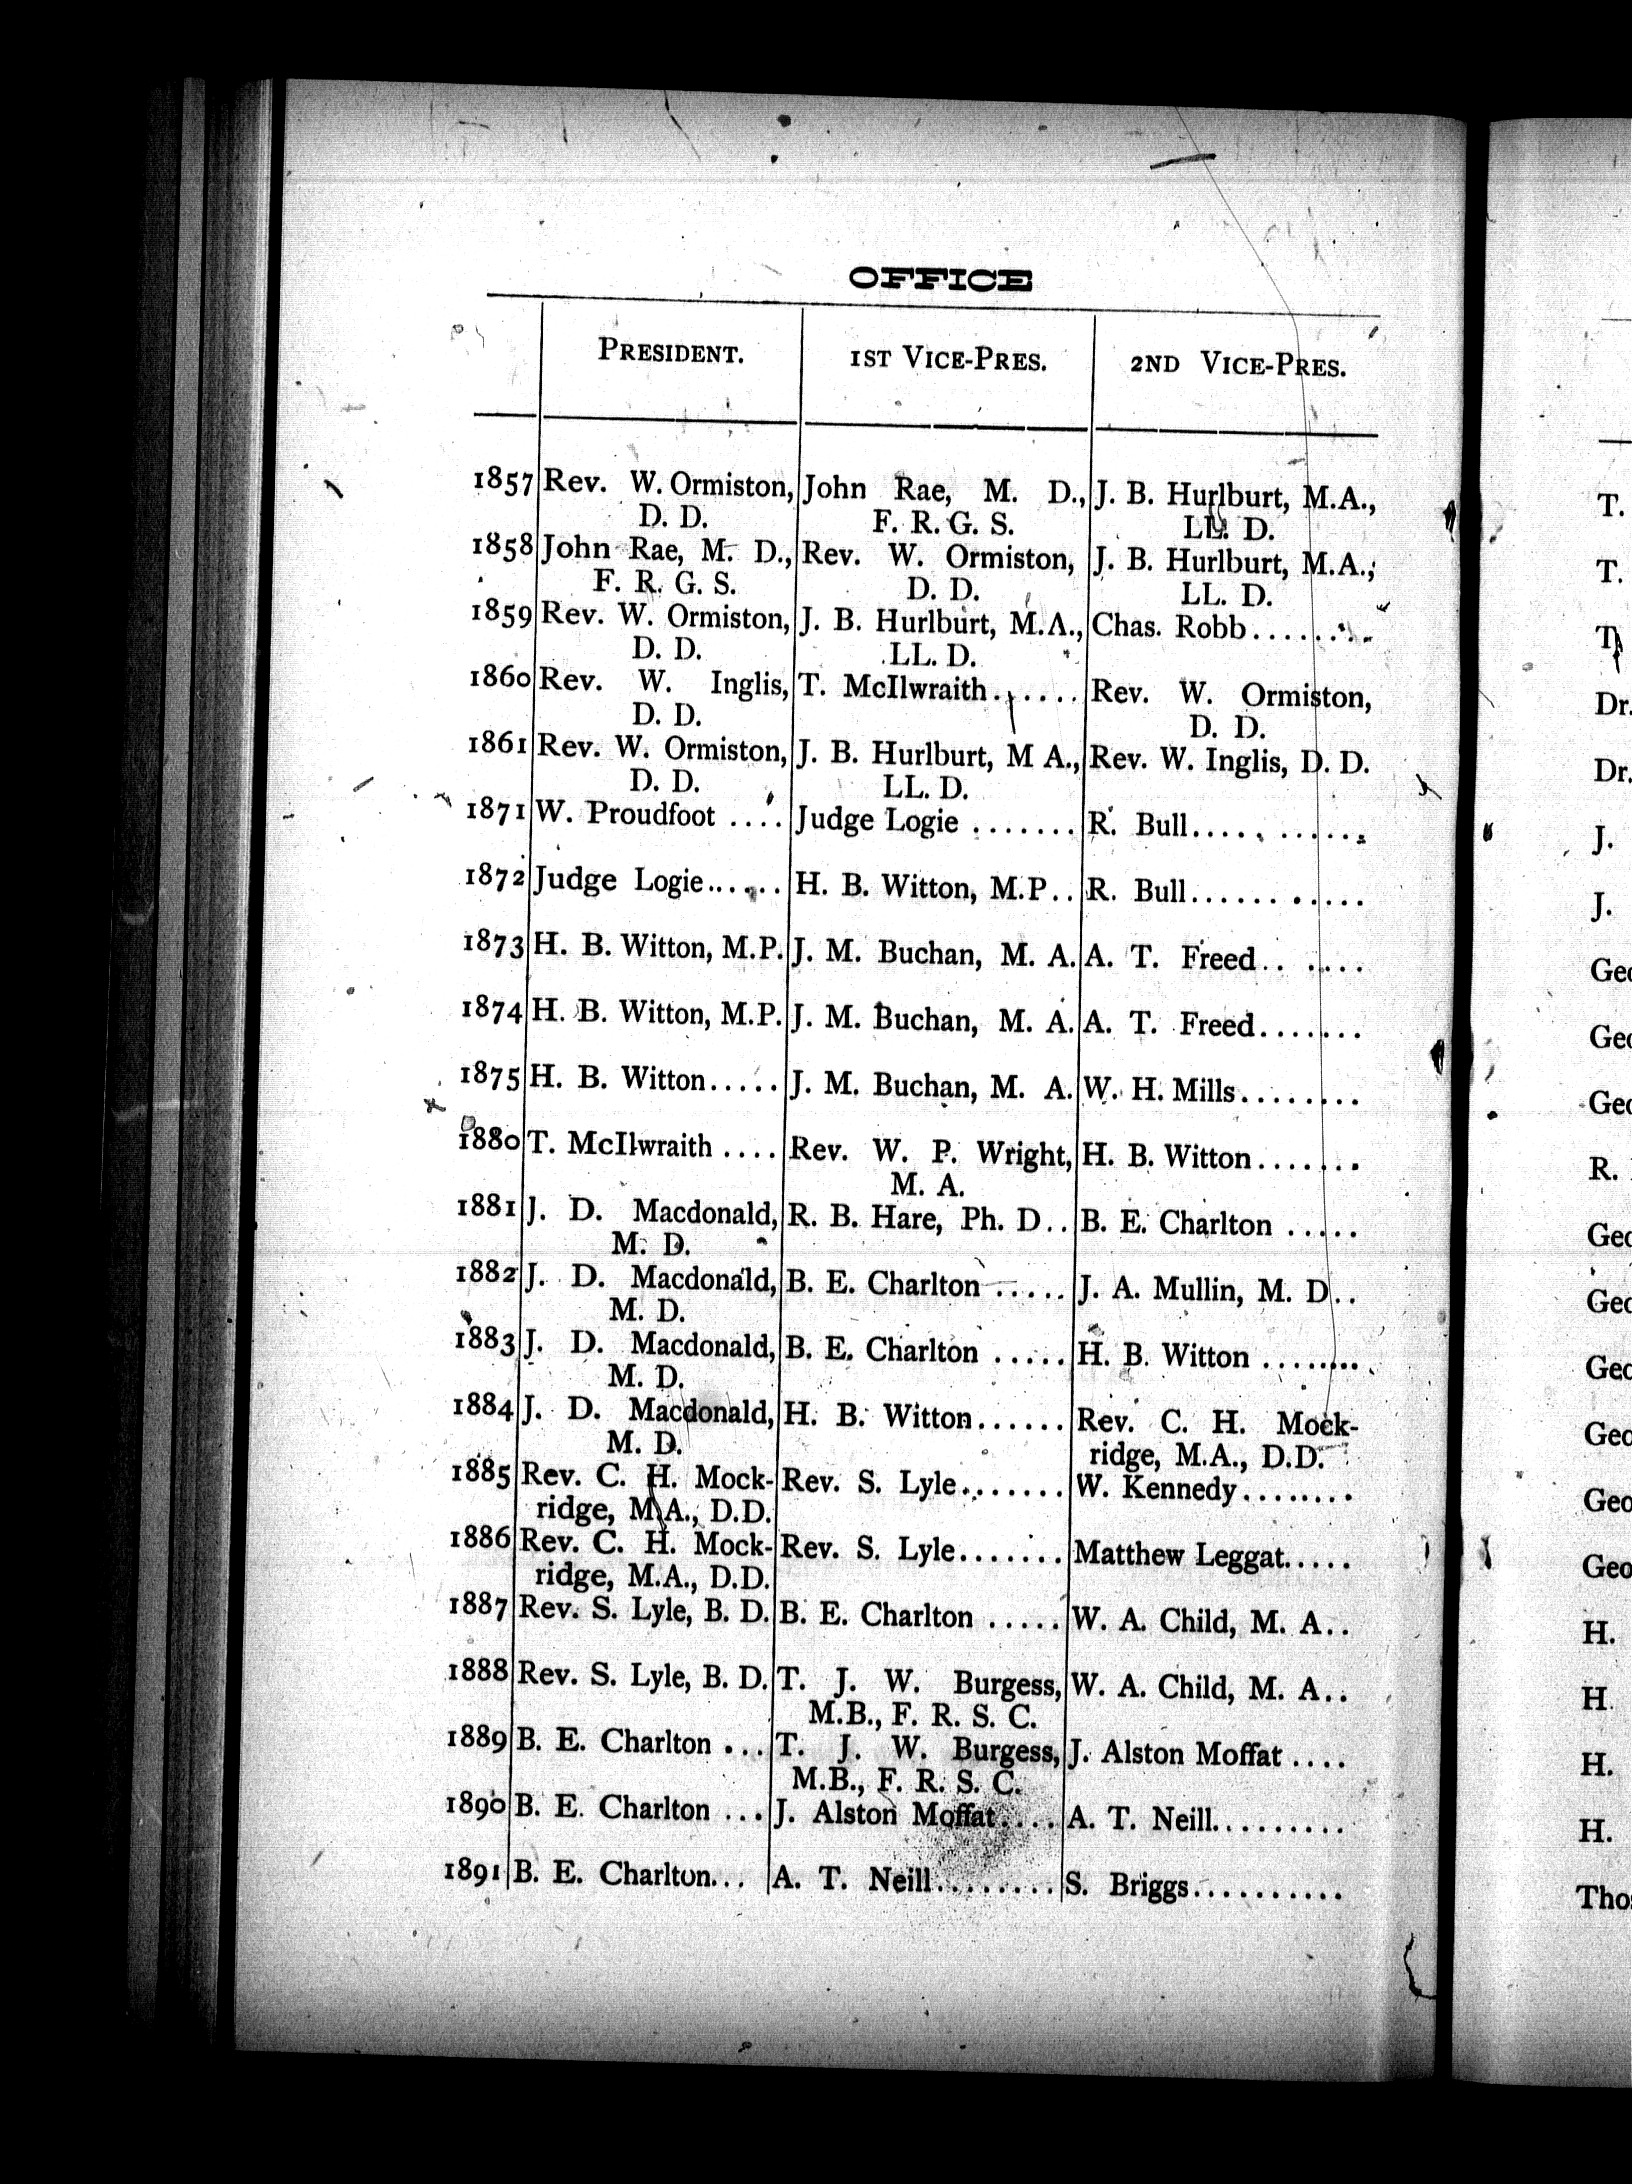 OFFICE
PRESIDENT. 1ST VICE-PRES. 2ND VICE-PRES.
1857 Rev. W. Ormiston, John Rae, M. D., J. B. Hurlburt, M.A.,
D. D. F. R. G. S. LL. D.
1858 John Rae, M. D., Rev. W. Ormiston, J. B. Hurlburt, M.A.,
F. R. G. S. D. D. LL. D.
1859 Rev. W. Ormiston, J. B. Hurlburt, M.A., Chas. Robb........
D. D. LL. D.
1860 Rev. W. Inglis, T. McIlwraith...... Rev. W. Ormiston,
D. D. D. D.
1861 Rev. W. Ormiston, J. B. Hurlburt, M A., Rev. W. Inglis, D. D.
D. D. LL. D.
1871 W. Proudfoot .... Judge Logie ....... R. Bull...........
1872 Judge Logie...... H. B. Witton, M.P.. R. Bull...........
1873 H. B. Witton, M.P. J. M. Buchan, M. A. A. T. Freed.. ....
1874 H. B. Witton, M.P. J. M. Buchan, M. A. A. T. Freed.......
1875 H. B. Witton..... J. M. Buchan, M. A. W. H. Mills........
1880 T. McIlwraith .... Rev. W. P. Wright, H. B. Witton.......
M. A.
1881 J. D. Macdonald, R. B. Hare, Ph. D.. B. E. Charlton .....
M. D.
1882 J. D. Macdonald, B. E. Charlton ..... J. A. Mullin, M. D..
M. D.
1883 J. D. Macdonald, B. E. Charlton ..... H. B. Witton ........
M. D.
1884 J. D. Macdonald, H. B. Witton...... Rev. C. H. Mock-
M. D. ridge, M.A., D.D.
1885 Rev. C. H. Mock- Rev. S. Lyle....... W. Kennedy........
ridge, M.A., D.D.
1886 Rev. C. H. Mock- Rev. S. Lyle....... Matthew Leggat.....
ridge, M.A., D.D.
1887 Rev. S. Lyle, B. D. B. E. Charlton ..... W. A. Child, M. A..
1888 Rev. S. Lyle, B. D. T. J. W. Burgess, W. A. Child, M. A..
M.B., F. R. S. C.
1889 B. E. Charlton ... T. J. W. Burgess, J. Alston Moffat ....
M.B., F. R. S. C.
1890 B. E. Charlton ... J. Alston Moffat.... A. T. Neill.........
1891 B. E. Charlton... A. T. Neill........ S. Briggs..........
T.
T.
T
Dr.
Dr.
J.
J.
Geo
Geo
Geo
R.
Geo
Geo
Geo
Geo
Geo
Geo
H.
H.
H.
H.
Tho